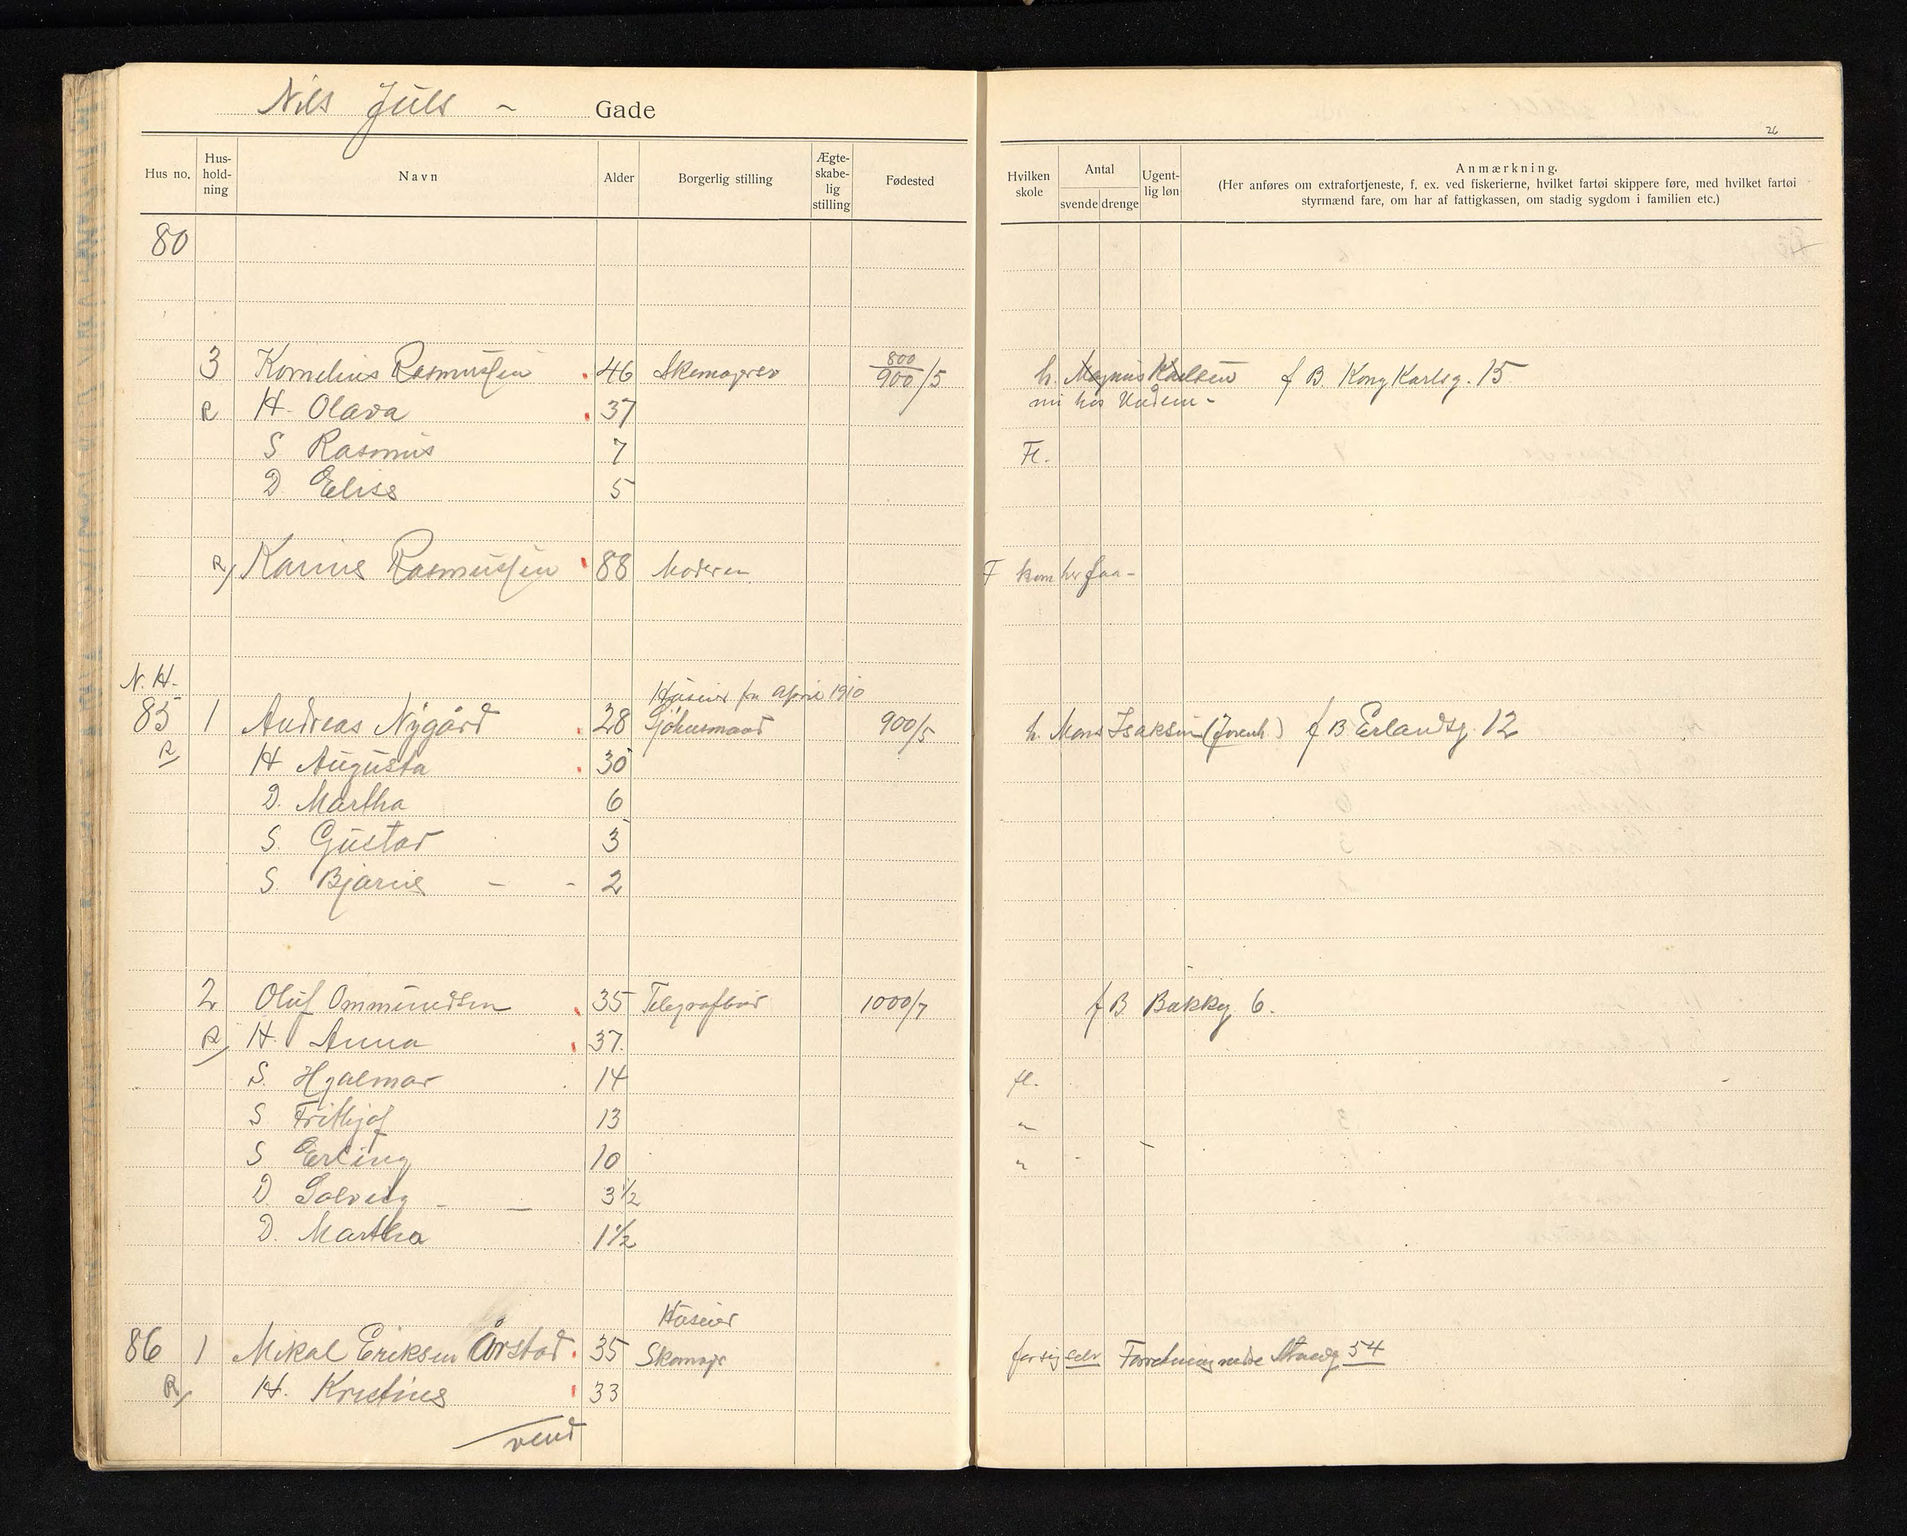 Nils Juls - Gade
26
Hus no. Hus-hold-ning Navn Alder Borgerlig stilling Ægte-skabe-lig stilling Fødested Hvilken skole Antal svende drenge Ugent-lig løn Anmærkning.
(Her anføres om extrafortjeneste, f. ex. ved fiskerierne, hvilket fartøi skippere føre, med hvilket fartøi
styrmænd fare, om har af fattigkassen, om stadig sygdom i familien etc.)
80
3 Kornelius Rasmussen 46 Skomagersv 800/900/5 h. Magnus Karlsen f B Kong Karlsg. 15
R H. Olava 37 nu hos
S Rasmus 7 Fl.
D. Elise 5
R Karine Rasmussen 88 Moderen F kom her faa-
N.H. Huseier fra April 1910
85 1 Andreas Nygård 28 Sjøhusmand 900/5 h. Mons Isaksen f B Erlandsg. 12
R H Augusta 30
D. Martha 6
S Gustav 3
S Bjarne - - 2
2 Oluf Ommundsen 35 Telegrafbud 1000/7 f B Bakkeg. 6.
R H. Anna 37.
S. Hjalmar 14 fl.
S Frithjof 13 "
S Erling 10 "
D. Solveig - - 3 1/2
D. Martha 1 1/2
Huseier
86 1 Mikal Eriksen Årstad 35 Skomager for sig selv Forretning nedre Strandg 54
R H. Kristine 33
vend